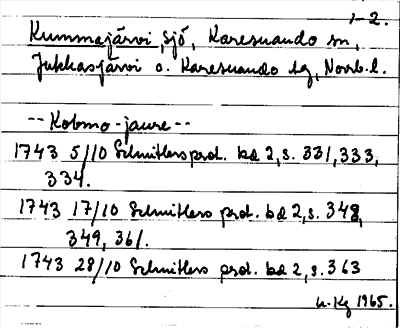 1-2.
Kummajärvi, sjö, Karesuando sn,
Jukkasjärvi o. Karesuando lg, Norrb. l.
-- Kobmo-jaure --
1743 5/10 Schnitlers prot. bd 2, s. 331, 333,
334.
1743 17/10 Schnitlers prot. bd 2, s. 348,
349, 361.
1743 28/10 Schnitlers prot. bd 2, s. 363
Kg 1965.